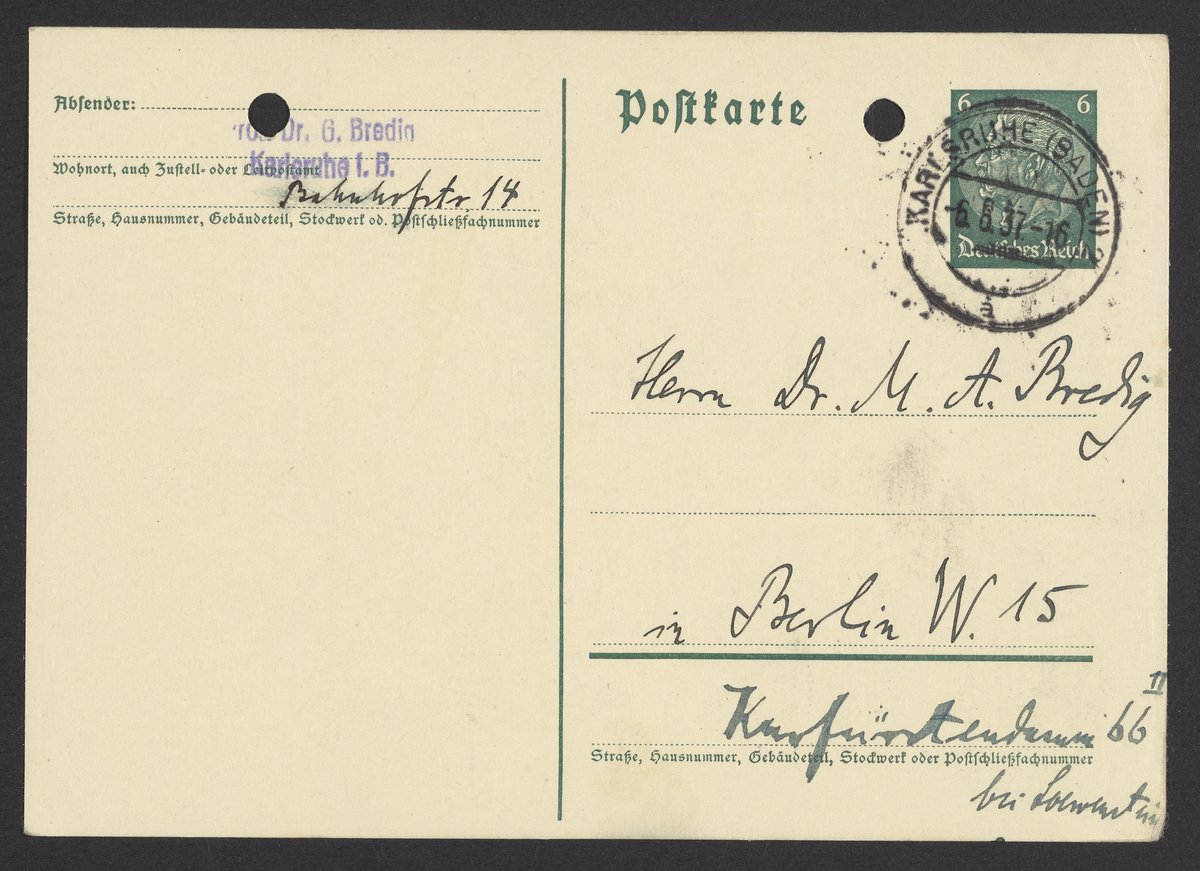 Absender:
Prof. Dr. G. Bredig
Karlsruhe i. B.
Wohnort, auch Zustell- oder Leitpostamt
Bahnhofstr. 14
Straße, Hausnummer, Gebäudeteil, Stockwerk od. Postschließfachnummer
Postkarte
6 6
KARLSRUHE (BADEN) 2
-6.8.37.-16
Deutsches Reich
a
Herrn Dr. M. A. Bredig
in Berlin W. 15
II
Kurfürstendamm 66
Straße, Hausnummer, Gebäudeteil, Stockwerk oder Postschließfachnummer
bei Loewenstein